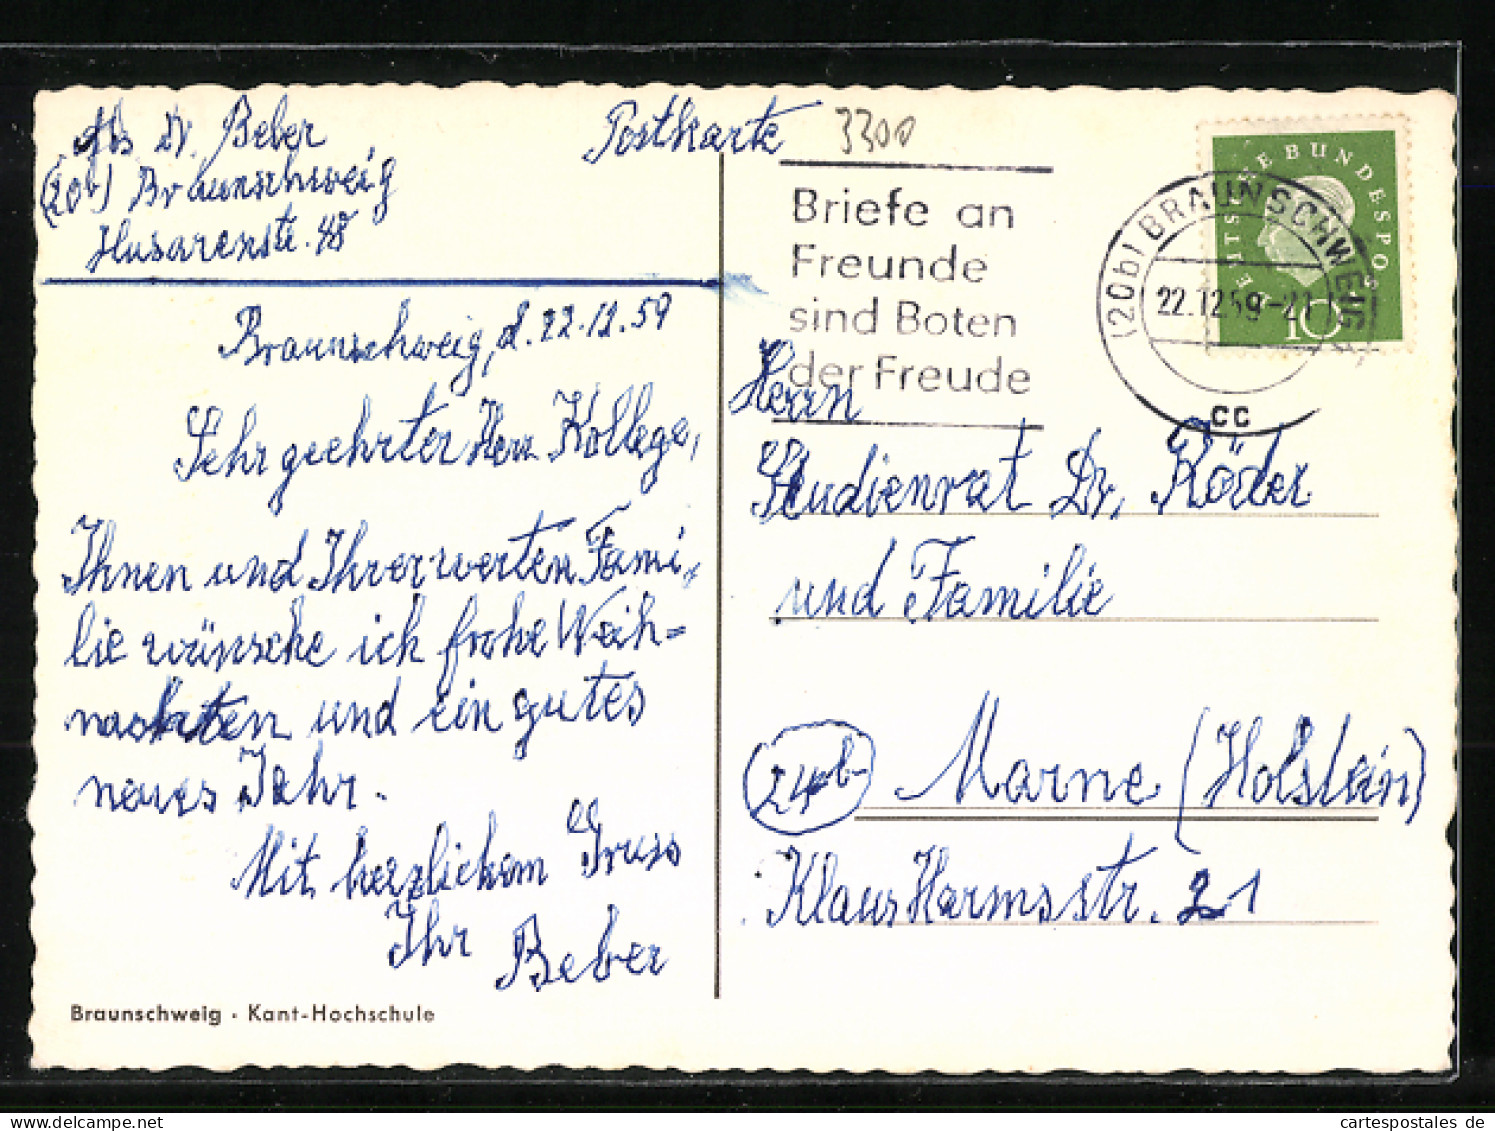 Abs. Dr. Beber
(20b) Braunschweig
Husarenstr. 48
Postkarte
3300
Briefe an
Freunde
sind Boten
der Freude
(20b) BRAUNSCHWEIG
22.12.59-21
cc
DEUTSCHE BUNDESPOST
10
Braunschweig, d. 22.12.59
Sehr geehrter Herr Kollege,
Ihnen und Ihrer werten Fami-
lie wünsche ich frohe Weih=
nachten und ein gutes
neues Jahr.
Mit herzlichem Gruss
Ihr Beber
Braunschweig · Kant-Hochschule
Herrn
Studienrat Dr. Röder
und Familie
24b Marne (Holstein)
Klaus Harmsstr. 21
cartespostales de